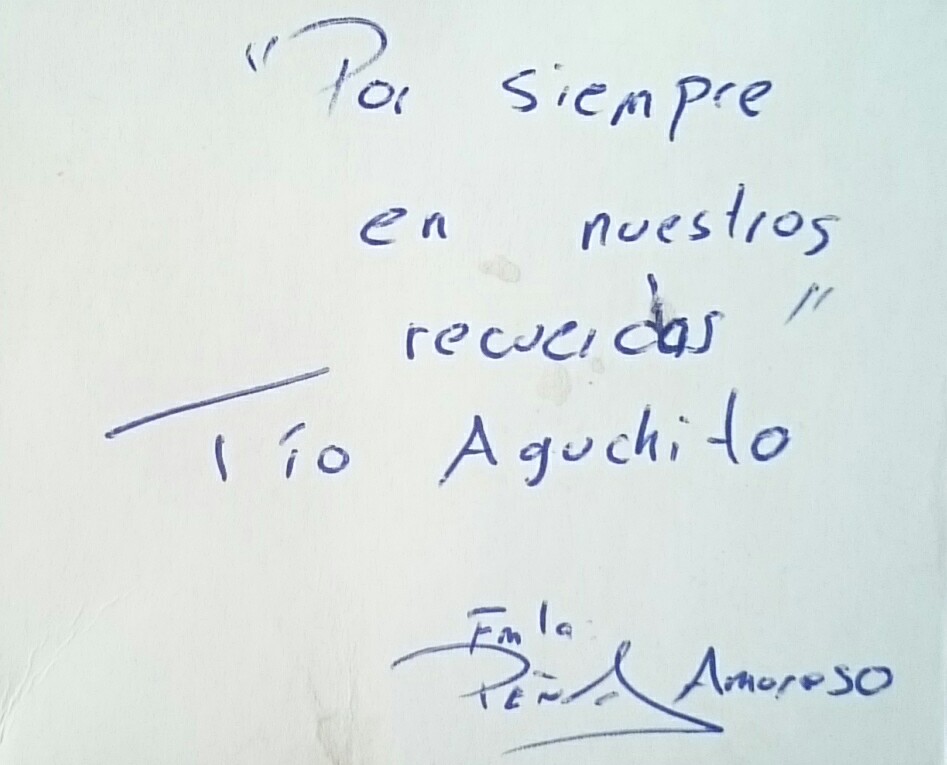 "Por siempre
en nuestros
recuerdos"
Tío Aguchito
Fmla
PEÑA Amoroso